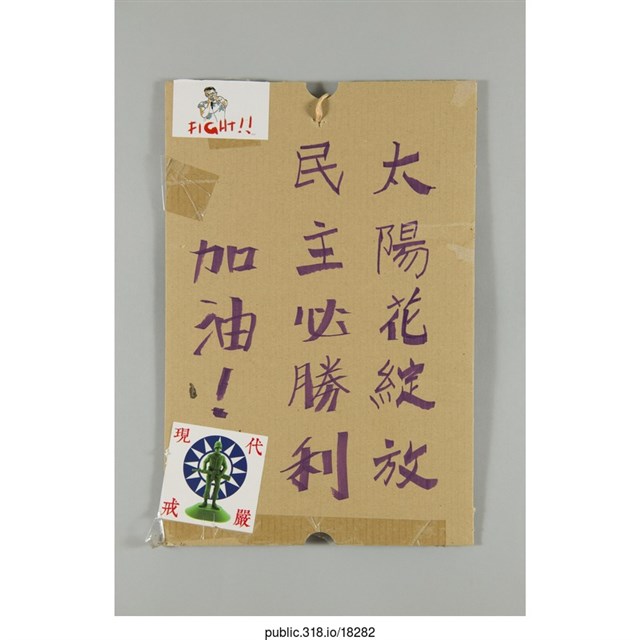 太陽花綻放
民主必勝利
加油！
FIGHT!!
現代
戒嚴
public.318.io/18282